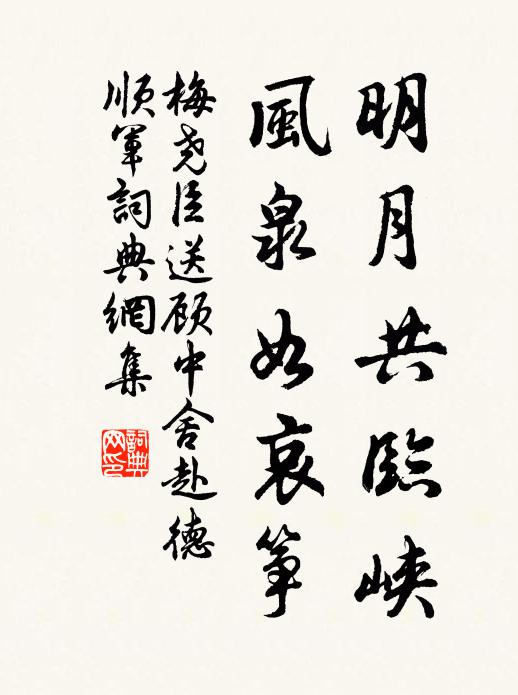 明月共臨峽
風泉如哀箏
梅堯臣送顾中舍赴德
順軍詞典網集
詞典
网印